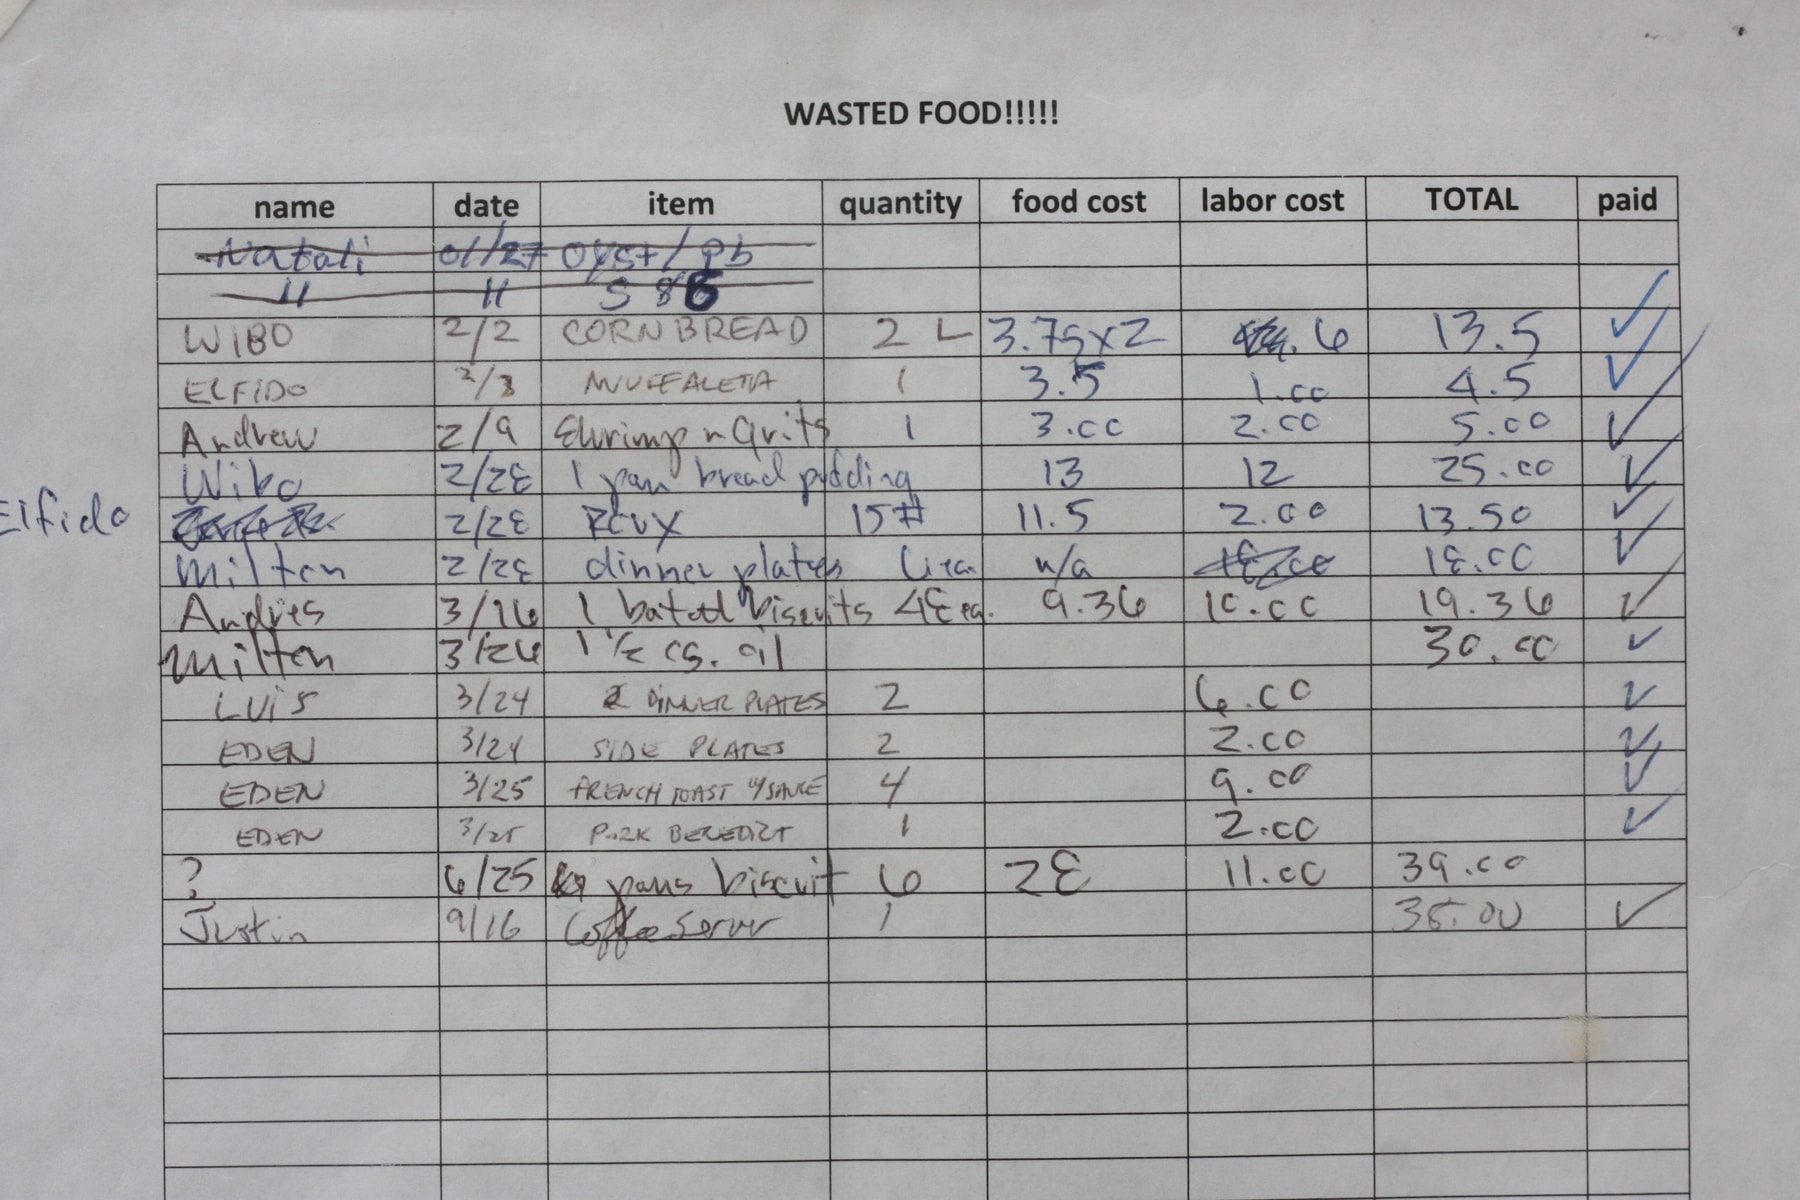 WASTED FOOD!!!!!
name date item quantity food cost labor cost TOTAL paid
Natali 01/27 oyst/pb
" " S 8 B
WIBO 2/2 CORNBREAD 2 L 3.75x2 6 13.5
ELFIDO 2/3 MUFFALETA 1 3.5 1.00 4.5
Andrew 2/9 Shrimp n Grits 1 3.00 2.00 5.00
Wibo 2/28 1 pan bread pudding 13 12 25.00
Elfido 2/28 ROUX 15# 11.5 2.00 13.50
Milton 2/28 dinner plates 6 ea. n/a 18.00 18.00
Andres 3/16 1 batch biscuits 48 ea. 9.36 10.00 19.36
Milton 3/26 1 1/2 cs. oil 30.00
LUIS 3/24 2 DINNER PLATES 2 6.00
EDEN 3/24 SIDE PLATES 2 2.00
EDEN 3/25 FRENCH TOAST W/SAUCE 4 9.00
EDEN 3/25 PORK BENEDICT 1 2.00
? 6/25 pans biscuit 6 28 11.00 39.00
Justin 9/16 Coffee Server 1 35.00